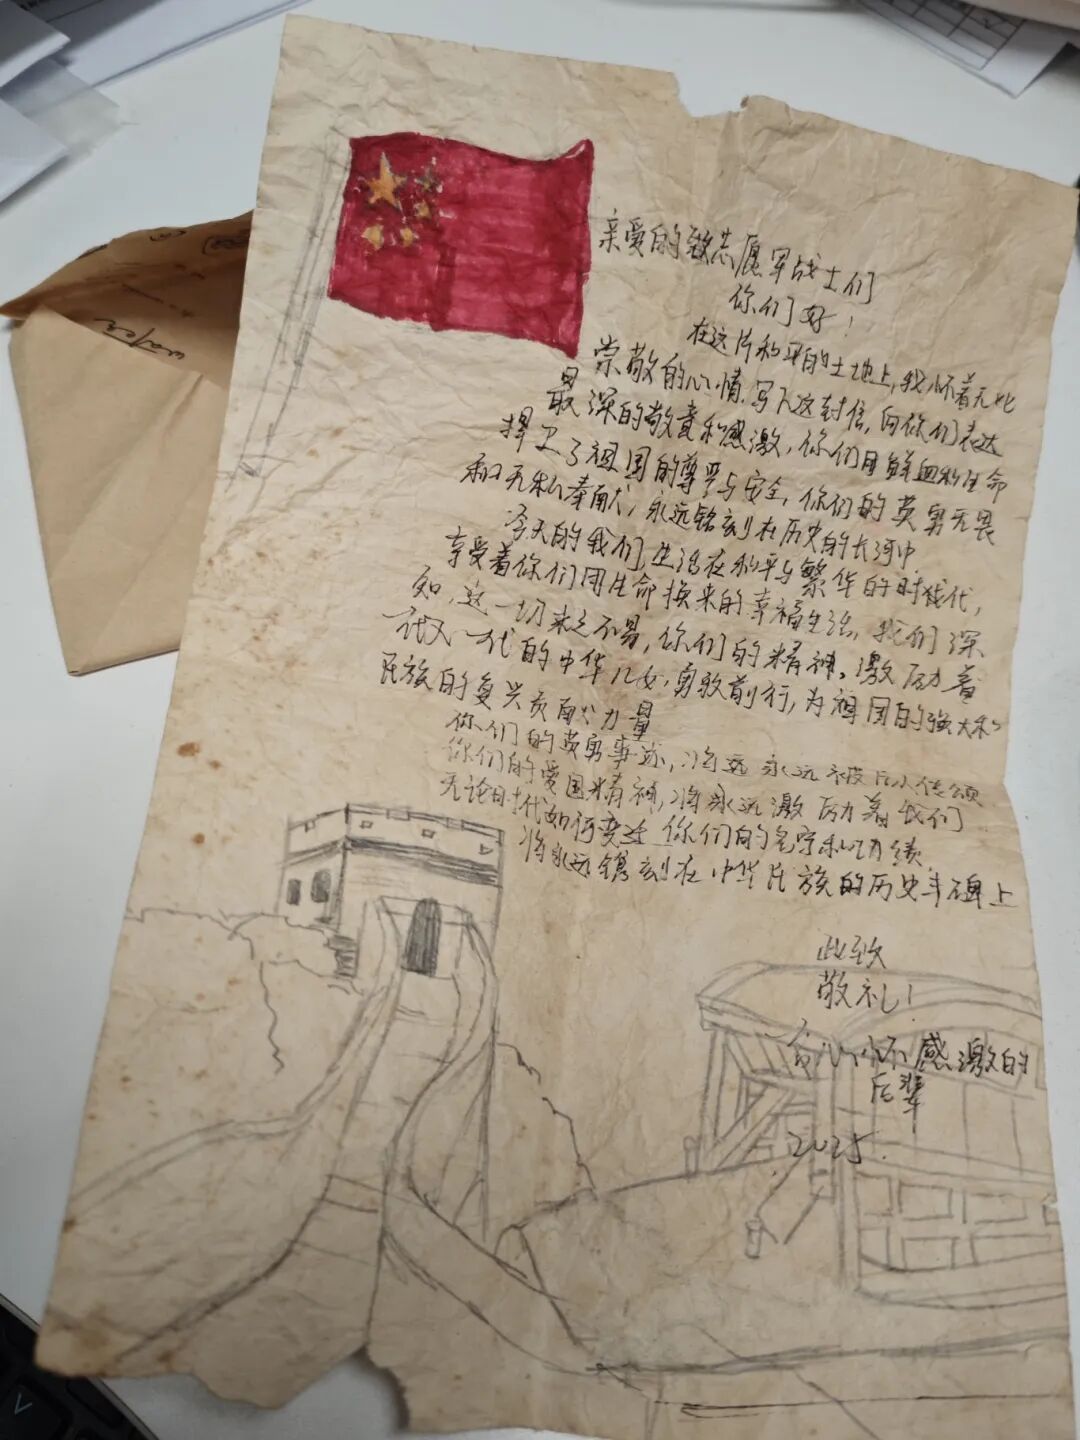 亲爱的致志愿军战士们
你们好！
在这片和平的土地上，我怀着无比
崇敬的心情，写下这封信，向你们表达
最深的敬意和感激，你们用鲜血和生命
捍卫了祖国的尊严与安全，你们的英勇无畏
和无私奉献，永远铭刻在历史的长河中
今天的我们，生活在和平与繁华的时代，
享受着你们用生命换来的幸福生活，我们深
知，这一切来之不易，你们的精神，激励着
一代又一代的中华儿女，勇敢前行，为祖国的强大和
民族的复兴贡献力量
你们的英勇事迹，将远永远被后人传颂
你们的爱国精神，将永远激励着我们
无论时代如何变迁 你们的名字和功绩
将永远镌刻在中华民族的历史丰碑上
此致
敬礼！
心怀感激的
后辈
2025.